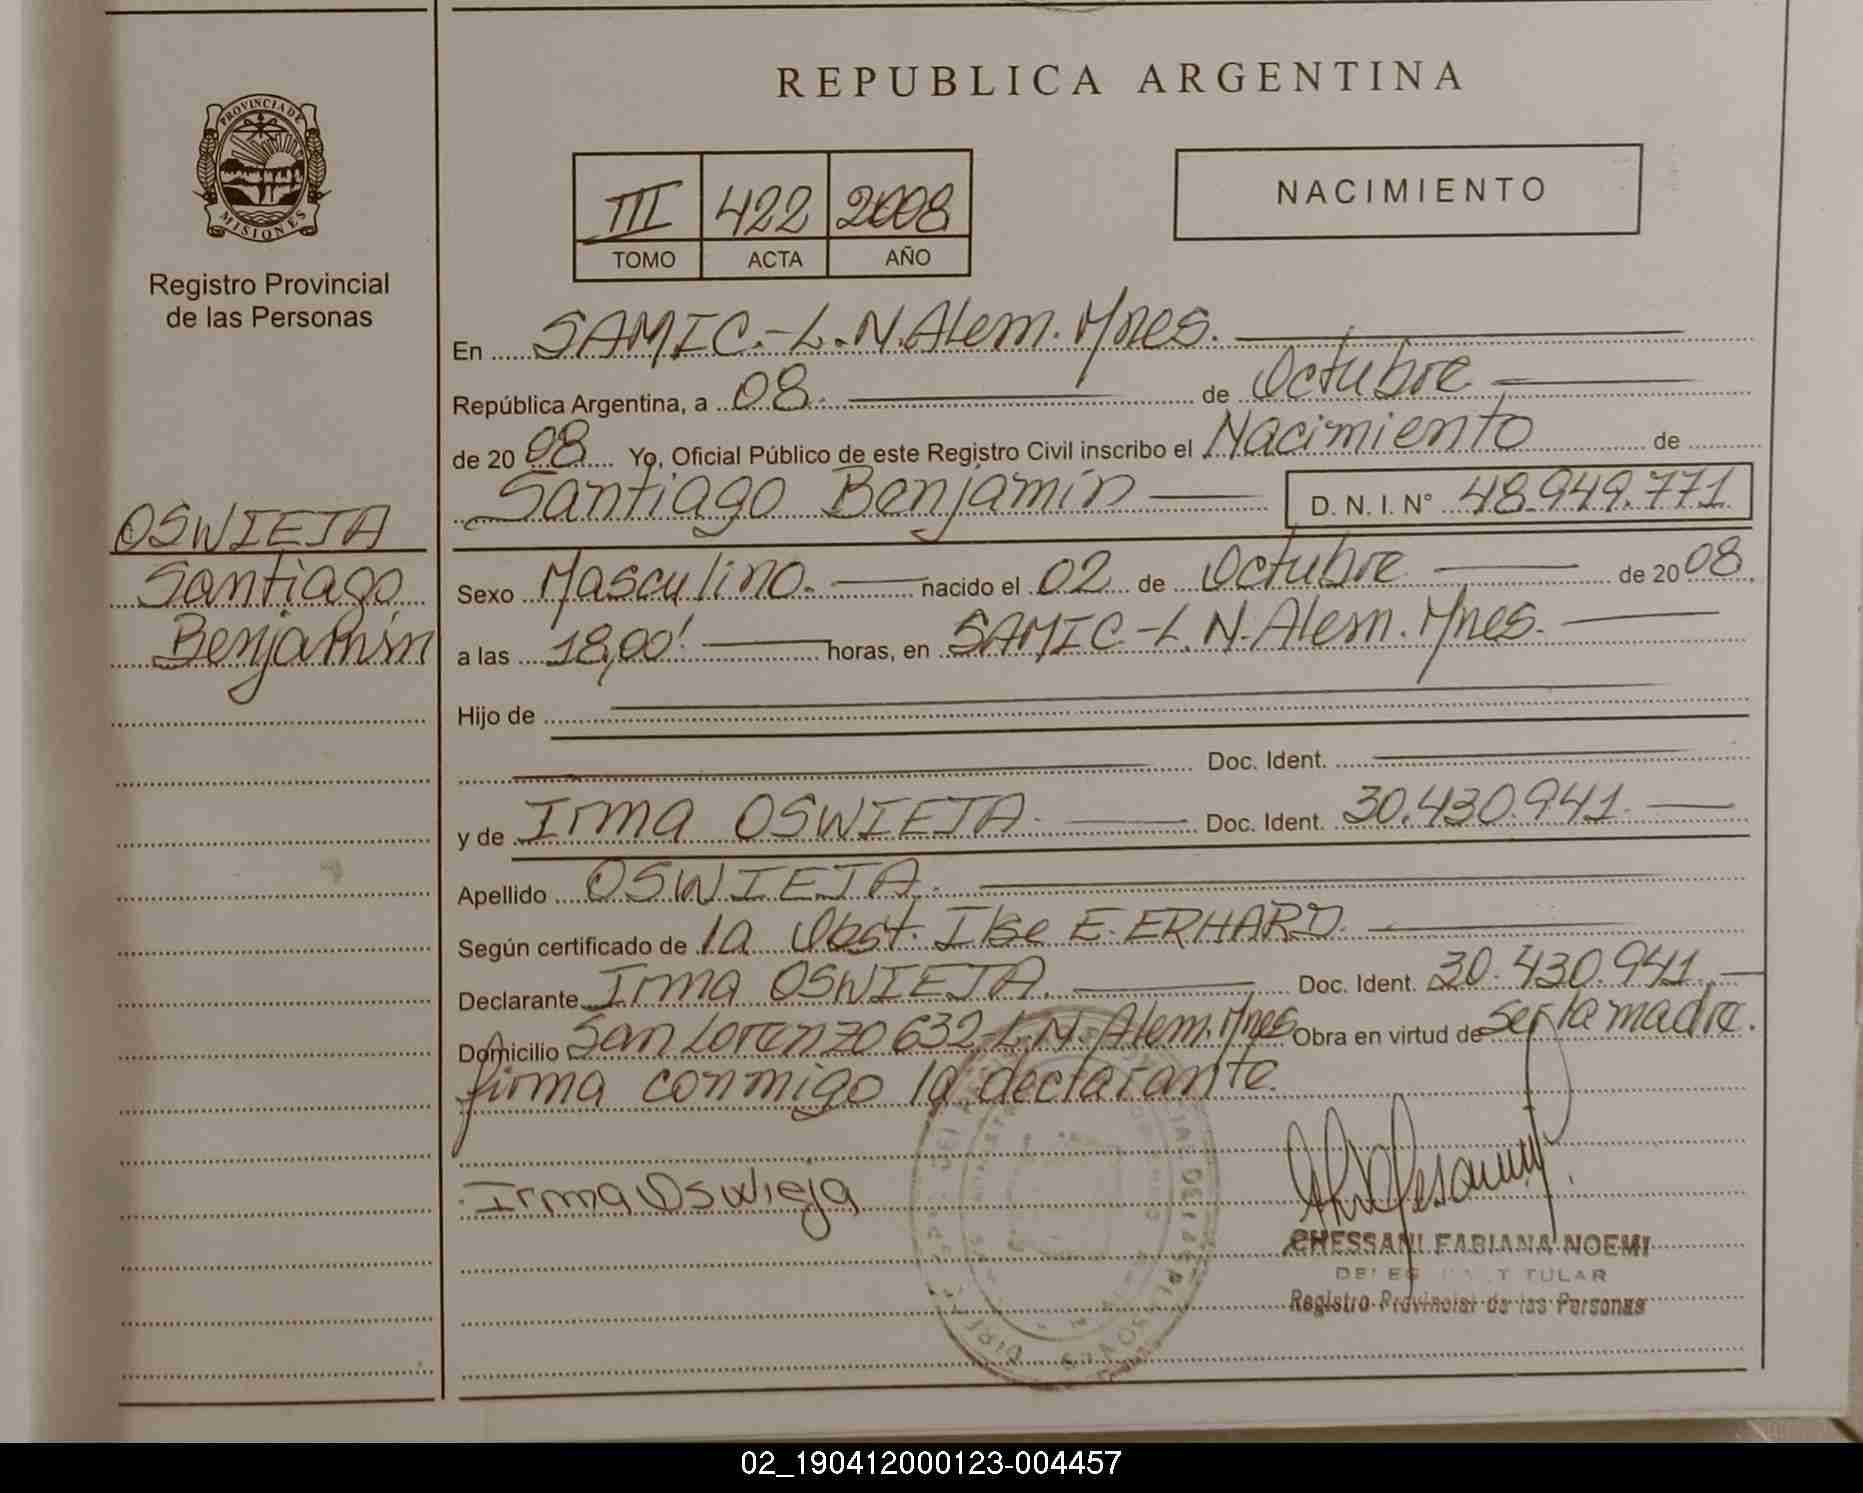 REPUBLICA ARGENTINA
PROVINCIA DE
MISIONES
Registro Provincial
de las Personas
III 422 2008
TOMO ACTA AÑO
NACIMIENTO
En SAMIC.-L.N.Alem.Mnes.
República Argentina, a 08. de Octubre
de 20 08 Yo, Oficial Público de este Registro Civil inscribo el Nacimiento de
Santiago Benjamín D. N. I. N° 48.949.771
OSWIEJA
Santiago
Benjamín
Sexo Masculino. nacido el 02 de Octubre de 20 08
a las 18,00' horas, en SAMIC-L.N.Alem.Mnes.
Hijo de
Doc. Ident.
y de Irma OSWIEJA. Doc. Ident. 30.430.941.
Apellido OSWIEJA.
Según certificado de la Obst. Ilse E. ERHARD.
Declarante Irma OSWIEJA. Doc. Ident. 30.430.941.
Domicilio San Lorenzo 632-L.N.Alem.Mnes Obra en virtud de ser la madre.
firma conmigo la declarante.
Irma Oswieja
CHESSANI FABIANA NOEMI
TITULAR
Registro Provincial de las Personas
02_190412000123-004457